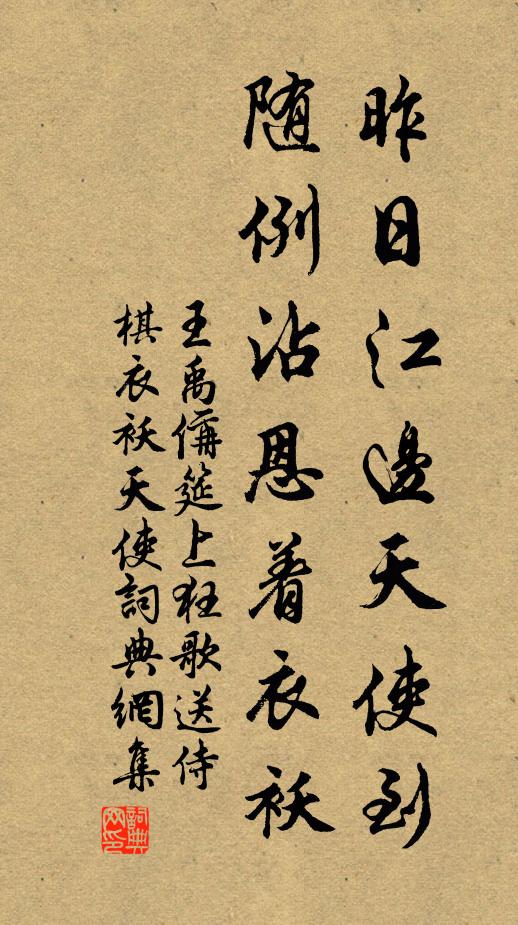 昨日江邊天使到
随例沾恩着衣袄
王禹偁筵上狂歌送侍
棋衣袄天使詞典網集
詞典网印